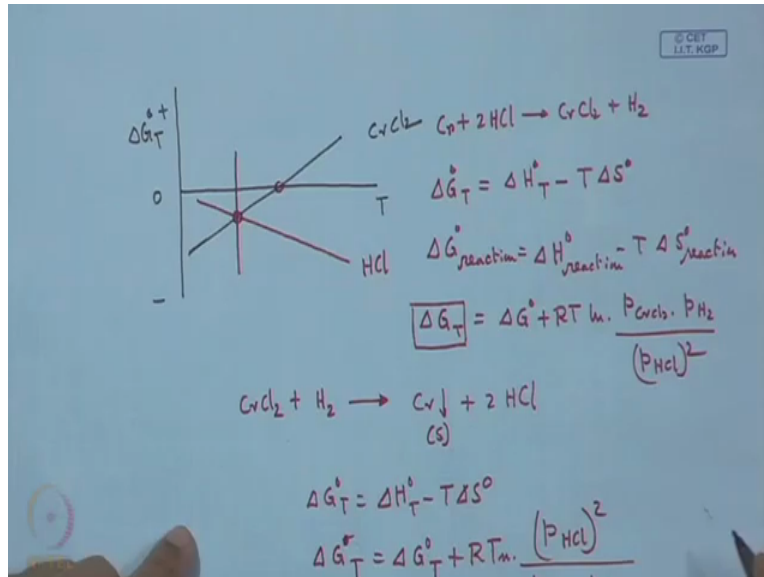 © CET
I.I.T. KGP
+
ΔG°T
0
-
T
CrCl2
HCl
Cr + 2 HCl → CrCl2 + H2
ΔG°T = ΔH°T - TΔS°
ΔG°reaction = ΔH°reaction - T ΔS°reaction
ΔGT = ΔG° + RT ln. pCrCl2 . pH2 / (pHCl)²
CrCl2 + H2 → Cr↓ + 2 HCl
(s)
ΔG°T = ΔH°T - TΔS°
ΔG°T = ΔG°T + RT ln. (pHCl)²